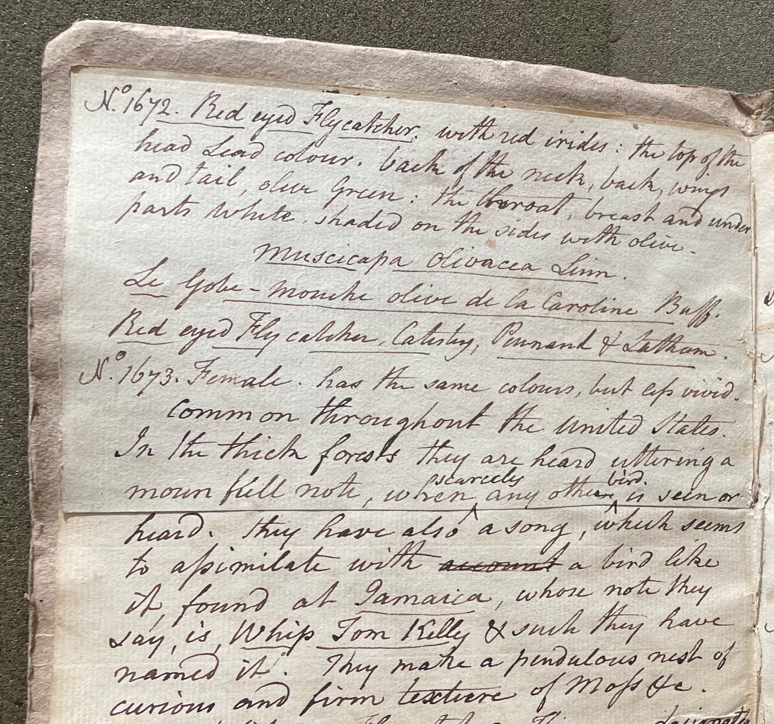 No. 1672. Red eyed Flycatcher. with red irides: the top of the
head Lead colour. back of the neck, back, wings
and tail, olive Green: the throat, breast and under
parts white. shaded on the sides with olive.
Muscicapa olivacea Linn.
Le Gobe-mouche olive de la Caroline Buff.
Red eyed Flycatcher, Catesby, Pennand & Latham.
No. 1673. Female. has the same colours, but less vivid.
Common throughout the United States.
In the thick forests they are heard uttering a
scarcely bird.
mournfull note, when any other is seen or
heard. They have also a song, which seems
to assimilate with account a bird like
it, found at Jamaica, whose note they
say, is, Whip Tom Kelly & such they have
named it. They make a pendulous nest of
curious and firm texture of Moss &c.
designate